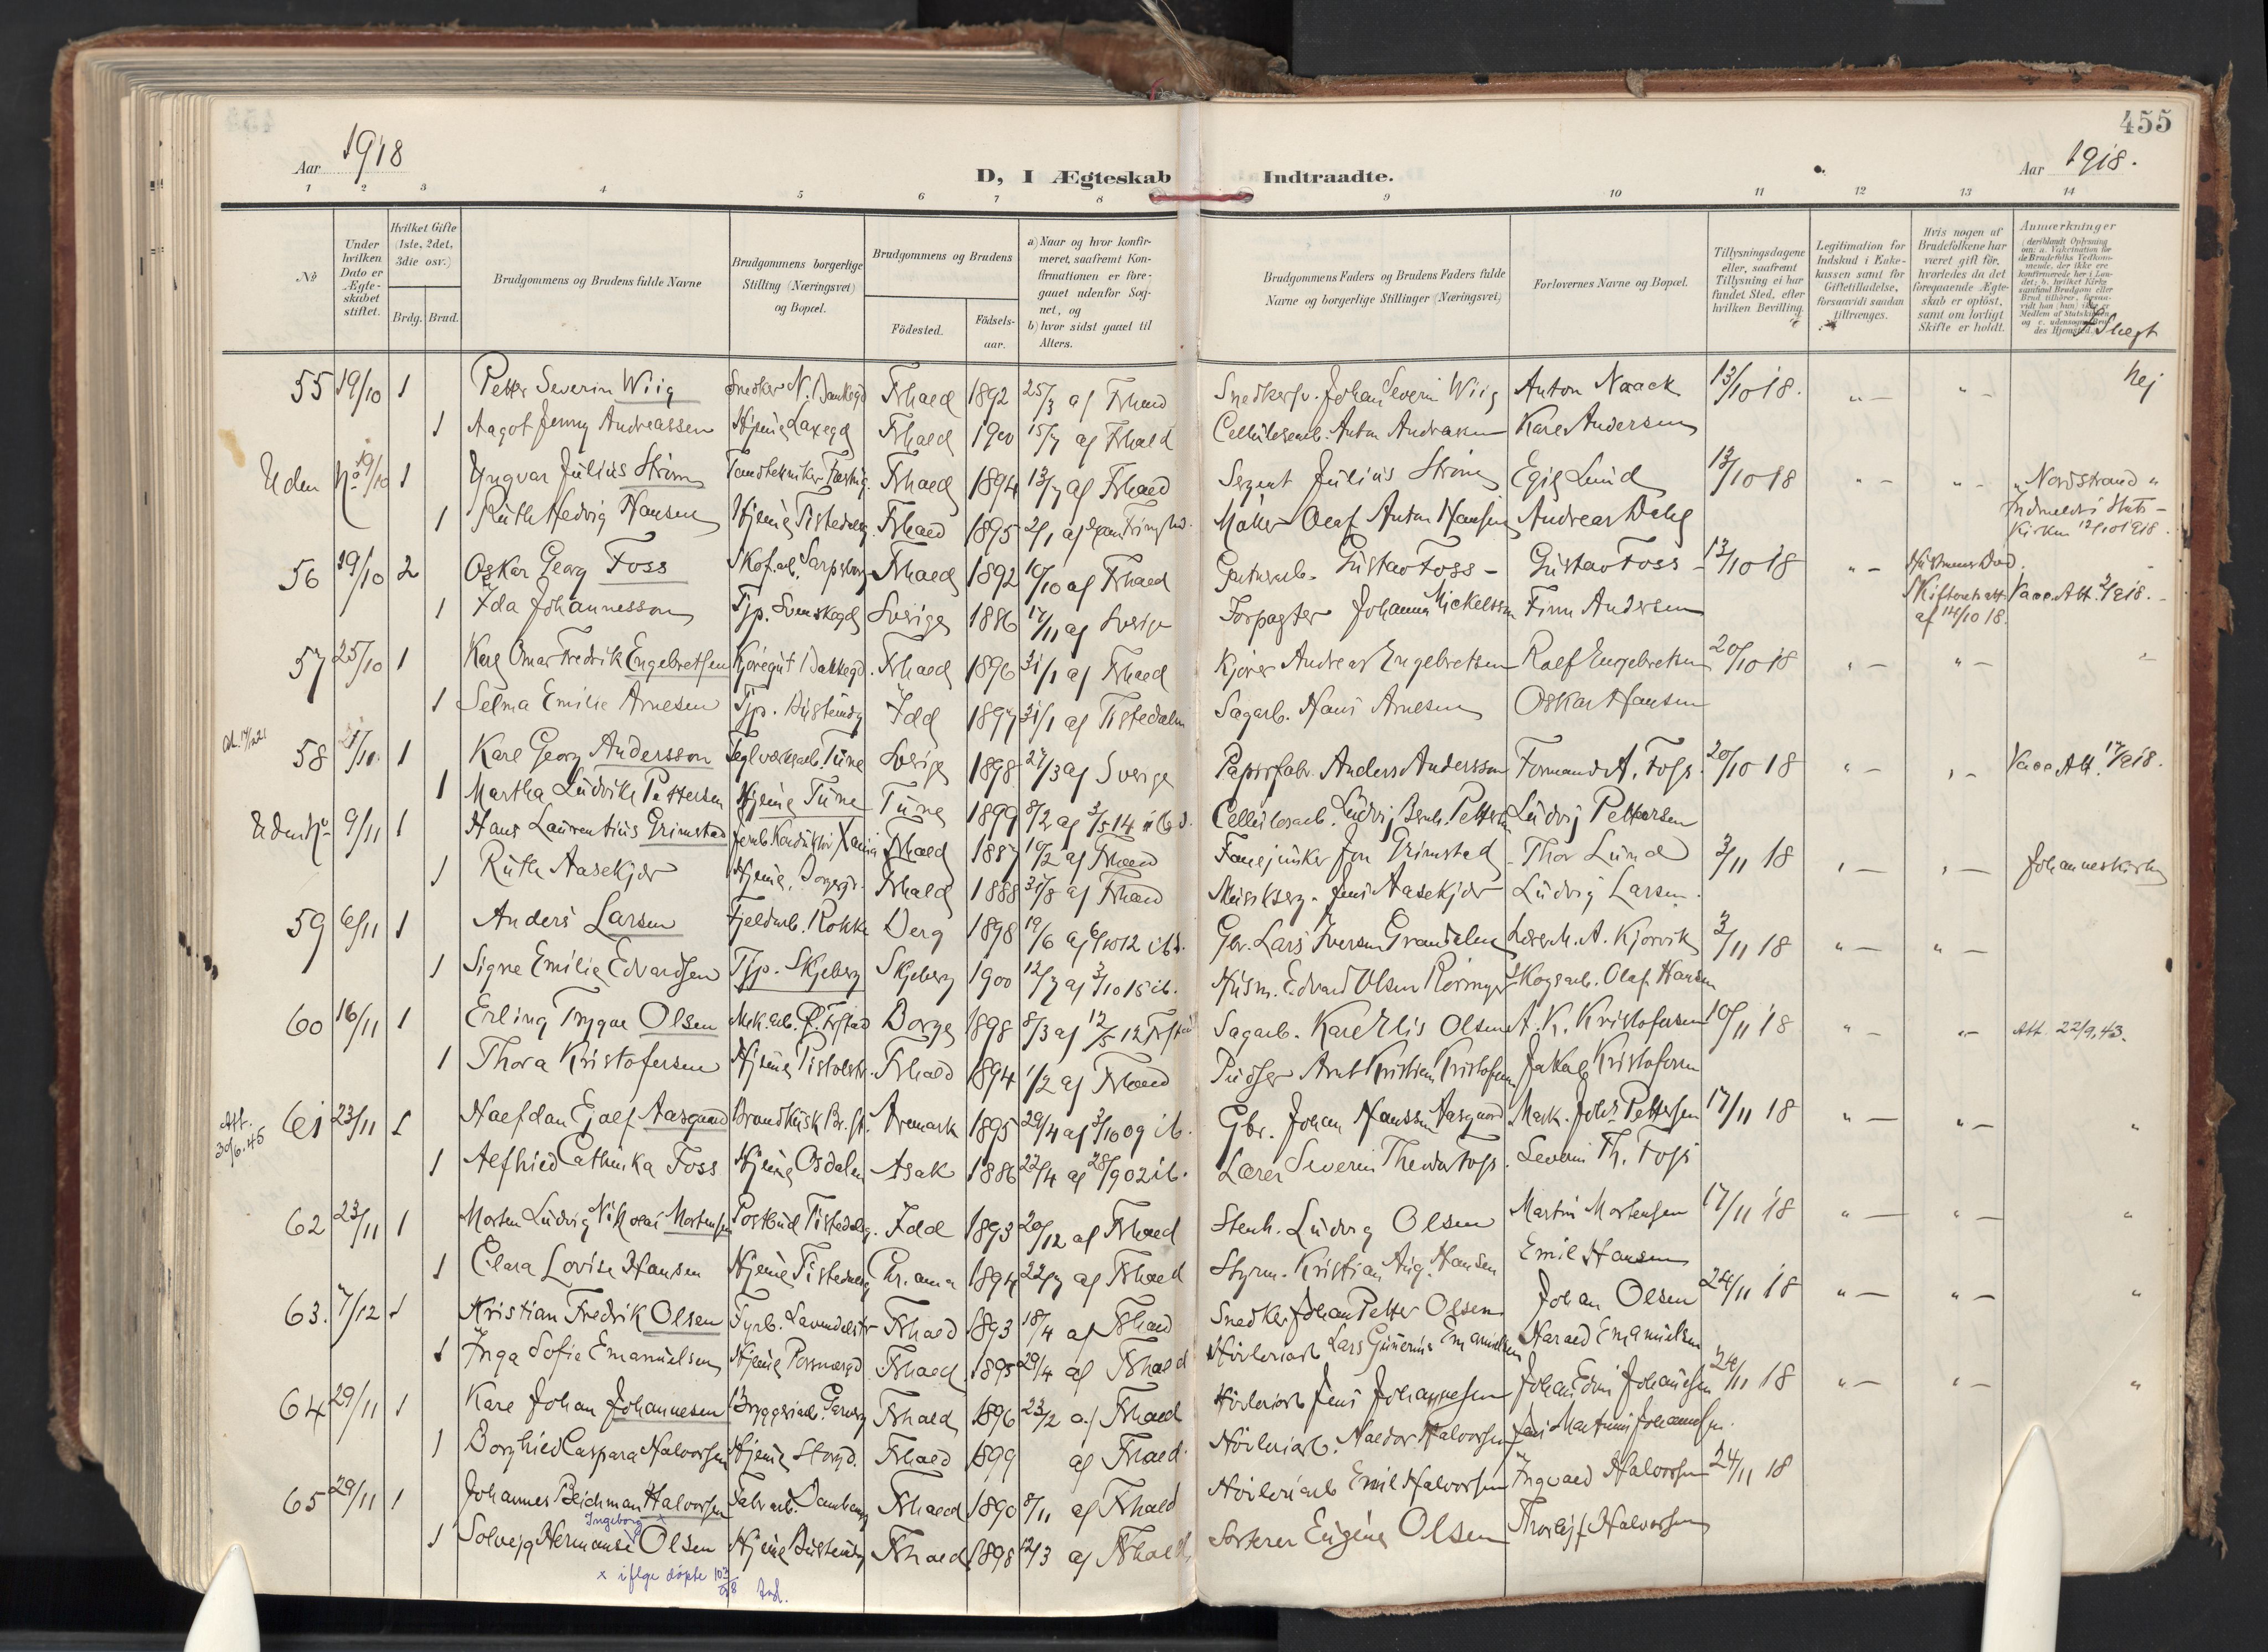 455
Aar 1918
D, I Ægteskab Indtraadte.
Aar 1918.
1 2 3 4 5 6 7 8 9 10 11 12 13 14
No
Under hvilken Dato er Ægteskabet stiftet.
Hvilket Gifte (1ste, 2det, 3die osv.)
Brdg. Brud.
Brudgommens og Brudens fulde Navne
Brudgommens borgerlige Stilling (Næringsvei) og Bopæl.
Brudgommens og Brudens
Födested.
Födsels-aar.
a) Naar og hvor konfirmeret, saafremt Konfirmationen er foregaaet udenfor Sognet, og
b) hvor sidst gaaet til Alters.
Brudgommens Faders og Brudens Faders fulde Navne og borgerlige Stillinger (Næringsvei)
Forlovernes Navne og Bopæl.
Tillysningsdagene eller, saafremt Tillysning ei har fundet Sted, efter hvilken Bevilling.
Legitimation for Indskud i Enkekassen samt for Giftetilladelse, forsaavidt saadan tiltrænges.
Hvis nogen af Brudefolkene har været gift för, hvorledes da det foregaaende Ægteskab er oplöst, samt om lovligt Skifte er holdt.
Anmærkninger
Slegt
55 19/10 1 Petter Severin Wiig Snedker N. Bankegd Frhald 1892 25/3 af Frhald Snedkersv. Johan Severin Wiig Anton Naack 13/10 18. " — " — nej
1 Aagot Jenny Andreassen Hjeme Laxegd Frhald 1900 15/7 af Frhald Cellulosearb. Anton Andreasen Karl Andersen
Uden No 19/10 1 Yngvar Julius Ström Tandtekniker Frhald 1894 13/7 af Frhald Sergent Julius Ström Egil Lund 13/10 18 " — " — "Nordstrand"
1 Ruth Hedvig Hansen Hjeme Tistedalsg. Frhald 1895 2/1 af Møller Olaf Anton Hansen Andreas Dahl Indmeldt i Stats-
Kirken 12/10 1918.
56 19/10 2 Oskar Georg Foss Skof.arb. Sarpsborg Frhald 1892 10/10 af Frhald Gustav Foss — Gustav Foss — 13/10 18 " — Hustruens Død.
1 Ida Johannesson Tjp. Svenskegd Sverige 1886 17/11 af Sverige Forpagter Johannes Mickelsson Finn Andersen Skifteatt. Vacc. Att.
af 14/10 18.
57 25/10 1 Karl Omar Fredrik Engebretsen Kjøregut Bakkegd. Frhald 1896 31/1 af Frhald Kjører Andreas Engebretsen Rolf Engebretsen 20/10 18 " — " — "
1 Selma Emilie Arnesen Tjp. Busterudg Idd 1897 31/1 af Tistedalen Sagarb. Hans Arnesen Oskar Hansen
58 1 Karl Georg Andersson Teglverksarb. Tune Sverige 1898 27/3 af Sverige Papirfabr. Anders Andersson Formand A. Foss. 20/10 18 " — " — Vacc. Att.
1 Martha Ludvike Pettersen Hjeme Tune Tune 1899 8/2 af 3/5 14 ibd. Cellulosearb. Ludvig Bernh. Pettersen Ludvig Pettersen
Uden No 9/11 1 Hans Laurentius Grimstad Jernb. Konduktör Xania Frhald 1887 10/2 af Frhald Fanejunker Jon Grimstad Thor Lund 3/11 18 " — " — Johanneskirken
1 Ruth Aasekjær Hjeme, Borgergt. Frhald 1888 31/8 af Frhald Musikserg. Jens Aasekjær Ludvig Larsen.
59 6/11 1 Anders Larsen Fjeldarb. Rokke Berg 1898 19/6 af 6/10 12 ibd. Gbr. Lars Iversen Grandalen Lærer M. A. Kjørvik 3/11 18 " — " —
1 Signe Emilie Edvardsen Tjp. Skjeberg Skjeberg 1900 12/7 af 3/10 15 ib. Husm. Edvard Olsen Skogsarb. Olaf Hansen
60 16/11 1 Erling Trygve Olsen Mek.arb. Ø. Frstad Borge 1898 8/3 af 12/5 12 Sagarb. Karl Elis Olsen A. K. Kristofersen 10/11 18 " — " — Att. 22/9.43.
1 Thora Kristofersen Hjeme Pistolstr. Frhald 1894 1/2 af Frhald Pudser Arnt Kristian Kristofersen Jakob Kristofersen
Att. 30/6.45 61 23/11 1 Halfdan Ejolf Aasgaard Brandkusk Br.st. Aremark 1895 29/4 af 3/10 09 ib. Gbr. Johan Hanssen Aasgaard Mask. Johs Pettersen 17/11 18 " — " — "
1 Alfhild Cathinka Foss Hjeme Osdalen Asak 1886 22/4 af 28/9 02 ib. Lærer Severin Theodor Foss. Severin Th. Foss
62 23/11 1 Morten Ludvig Nikolai Mortensen Postbud Tistedalsg. Idd 1893 20/12 af Frhald Stenh. Ludvig Olsen Martin Mortensen 17/11 18 " — " — "
1 Clara Lovise Hansen Hjeme Tistedalsg Chr.ania 1894 22/7 af Frhald Styrm. Kristian Aug. Hansen Emil Hansen
63. 7/12 1 Kristian Fredrik Olsen Fyrb. Lavendelstr Frhald 1893 18/4 af Frhald Snedker Johan Petter Olsen Johan Olsen 24/11 18 " — " — "
1 Inga Sofie Emanuelsen Hjeme Frhald 1895 29/4 af Frhald Høvleriarb Lars Gunerius Emanuelsen Harald Emanuelsen
64 29/11 1 Karl Johan Johannesen Bryggeriarb. Frhald 1896 23/2 af Frhald Høvleriarb Jens Johannesen Johan Edvin Johannesen 24/11 18 " — " — "
1 Borghild Caspara Halvorsen Hjeme Storgd. Frhald 1899 af Frhald Høvleriarb. Haldor Halvorsen
65 29/11 1 Johannes Beichman Halvorsen Fabr.arb. Damhaug Frhald 1890 8/11 af Frhald Høvleriarb Emil Halvorsen Ingvald Halvorsen 24/11 18
Ingeborg x
1 Solveig Hermanse Olsen Hjeme Busterudg Frhald 1898 12/3 af Frhald, Sorterer Eugene Olsen Thorleif Halvorsen
x iflge døpte